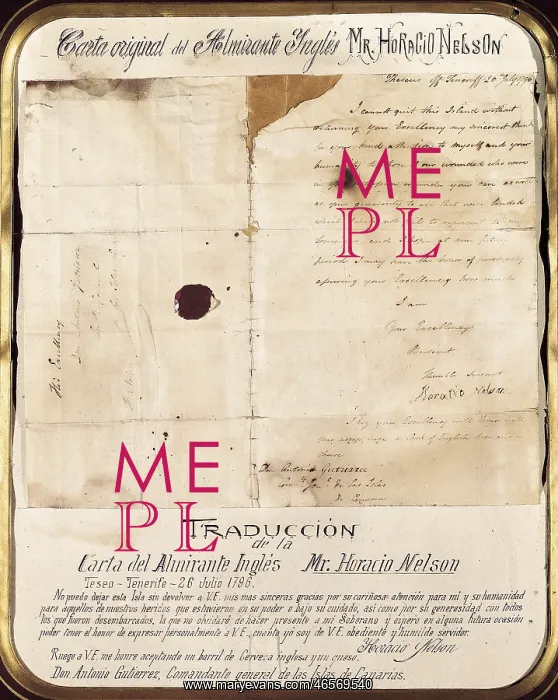 Carta original del Almirante Inglés Mr. Horacio Nelson
Theseus off Teneriff 26 July 1796
I cannot quit this Island without
returning your Excellency my sincerest thanks
for your kind attention to myself and your
humanity to those of our wounded who were
in your care as well
as your generosity to all that were landed
which I shall not fail to represent to my
Sovereign and I hope at some future
period I may have the honor of personally
assuring your Excellency how much
I am
Your Excellency's
Obedient
Humble Servant
Horatio Nelson
I beg your Excellency will honor me with
your acceptance a Cask of English Beer and a
cheese
Dn Antonio Gutierrez
Comt Gen l de las Islas
de Canaria
His Excellency
Don Antonio
ME
PL
ME
PL
TRADUCCIÓN
de la
Carta del Almirante Inglés Mr. Horacio Nelson
Teseo - Tenerife - 26 Julio 1796.
No puedo dejar esta Isla sin devolver a V.E. mis mas sinceras gracias por su cariñosa atención para mí y su humanidad
para aquellos de nuestros heridos que estuvieron en su poder o bajo su cuidado, así como por su generosidad con todos
los que fueron desembarcados, la que no olvidaré de hacer presente a mi Soberano y espero en alguna futura ocasión
poder tener el honor de expresar personalmente a V.E. cuanto yo soy de V.E. obediente y humilde servidor.
Horacio Nelson
Ruego a V.E. me honre aceptando un barril de Cerveza inglesa y un queso.
Don Antonio Gutierrez, Comandante general de las Islas de Canarias.
www.maryevans.com/46569540